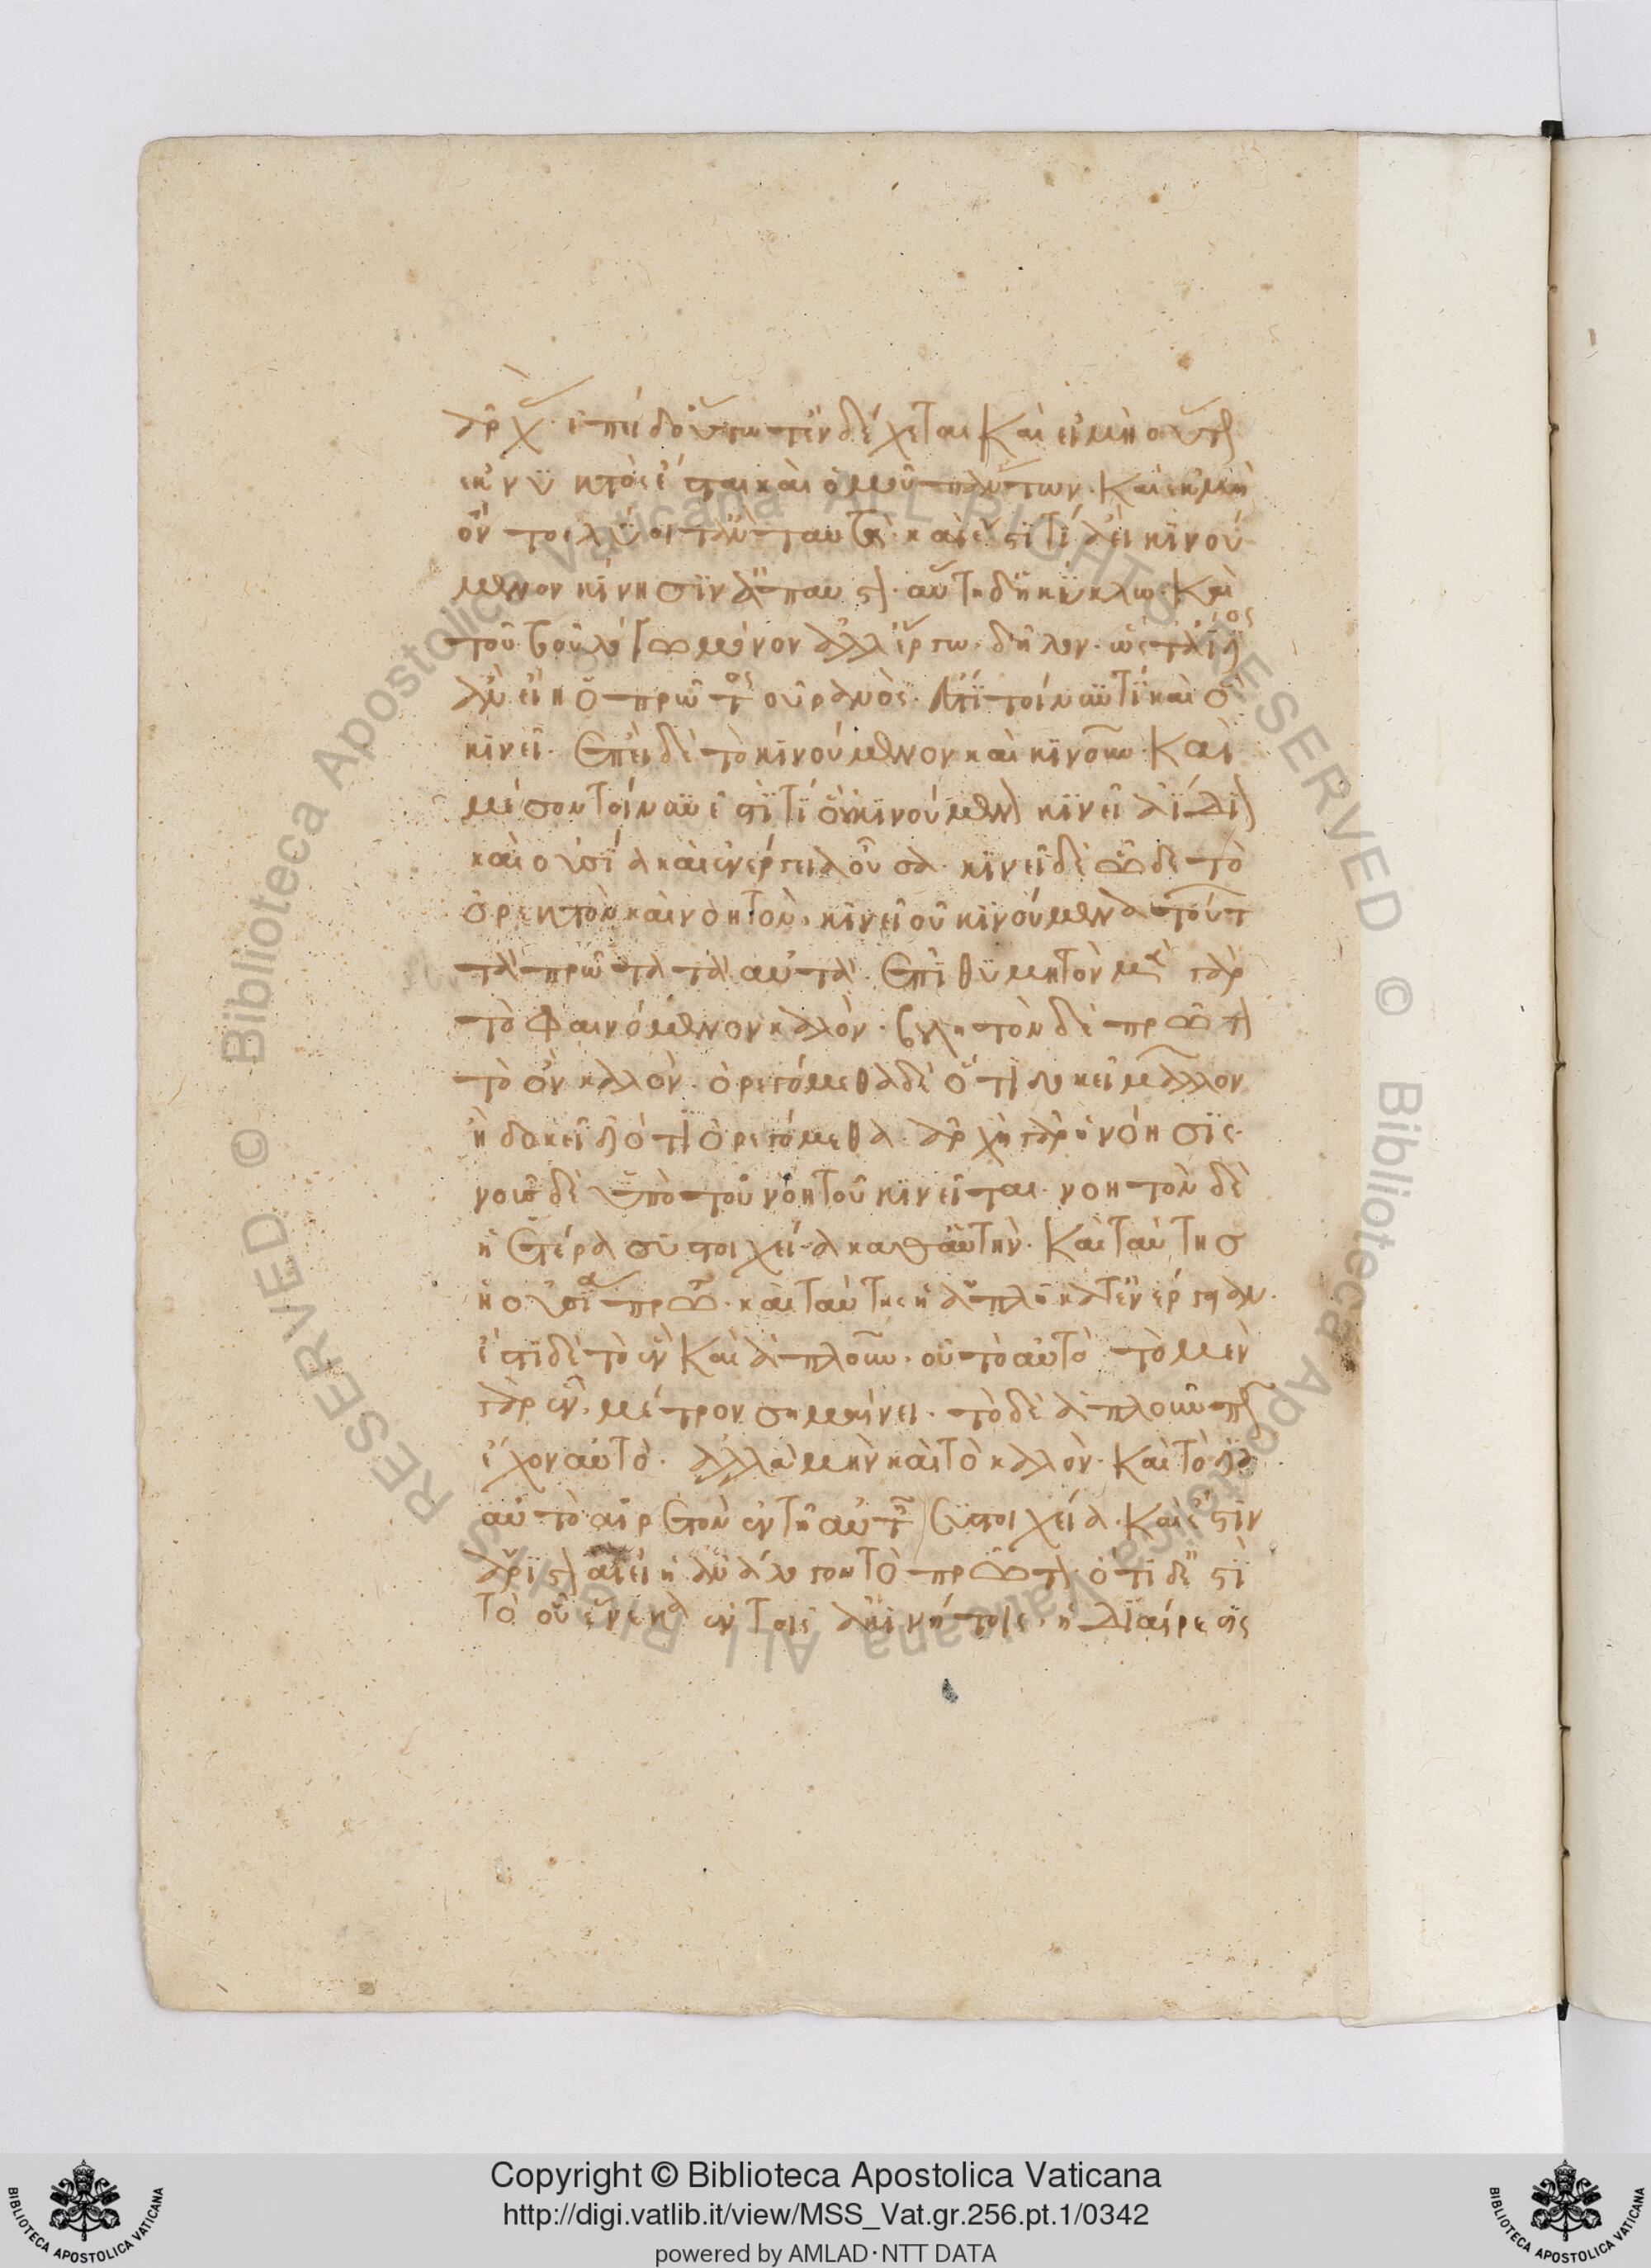 ἀρχάς. ἐπεὶ δ' οὕτω τ' ἐνδέχεται καὶ εἰ μὴ οὕτως
ἐκ νυκτὸς ἔσται καὶ ὁμοῦ πάντων. καὶ ἐκ μὴ
ὄντος λύοιτ' ἂν ταῦτα. καὶ ἔστι τί ἀεὶ κινού
μενον κίνησιν ἄπαυστον. αὕτη δ' ἡ κύκλω. καὶ
τοῦτο οὐ λόγω μόνον ἀλλ' ἔργω. δῆλον. ὥστ' ἀΐδιος
ἂν εἴη ὁ πρῶτος οὐρανός. ἔστι τοίνυν τί καὶ ὃ
κινεῖ. ἐπεὶ δὲ τὸ κινούμενον καὶ κινοῦν. καὶ
μέσον τοίνυν ἐστί τι ὃ οὐ κινούμενον κινεῖ ἀΐδιον
καὶ οὐσία καὶ ἐνέργεια οὖσα. κινεῖ δὲ ὧδε τὸ
ὀρεκτὸν καὶ νοητόν. κινεῖ οὐ κινούμενα τούτων
τὰ πρῶτα τὰ αὐτά. ἐπιθυμητὸν μὲν γὰρ
τὸ φαινόμενον καλόν. βουλητὸν δὲ πρῶτον
τὸ ὂν καλόν. ὀρεγόμεθα δὲ ὅτι δοκεῖ μᾶλλον
ἢ δοκεῖ διότι ὀρεγόμεθα. ἀρχὴ γὰρ ἡ νόησις.
νοῦς δὲ ὑπὸ τοῦ νοητοῦ κινεῖται. νοητὸν δὲ
ἡ ἑτέρα συστοιχεία καθ' αὑτήν. καὶ ταύτης
ἡ οὐσία πρώτη. καὶ ταύτης ἡ ἁπλῆ κατ' ἐνέργειαν.
ἔστι δὲ τὸ ἓν καὶ ἁπλοῦν. οὐ τὸ αὐτὸ τὸ μὲν
γὰρ ἓν. μέτρον σημαίνει. τὸ δὲ ἁπλοῦν πῶς
ἔχον αὐτό. ἀλλὰ μὴν καὶ τὸ καλόν. καὶ τὸ δι'
αὑτὸ αἱρετὸν ἐν τῇ αὐτῇ συστοιχεία. καὶ ἔστιν
ἄριστον ἀεὶ ἢ ἀνάλογον τὸ πρῶτον. ὅτι δ' ἔστι
τὸ οὗ ἕνεκα ἐν τοῖς ἀκινήτοις. ἡ διαίρεσις
Copyright © Biblioteca Apostolica Vaticana
http://digi.vatlib.it/view/MSS_Vat.gr.256.pt.1/0342
powered by AMLAD·NTT DATA